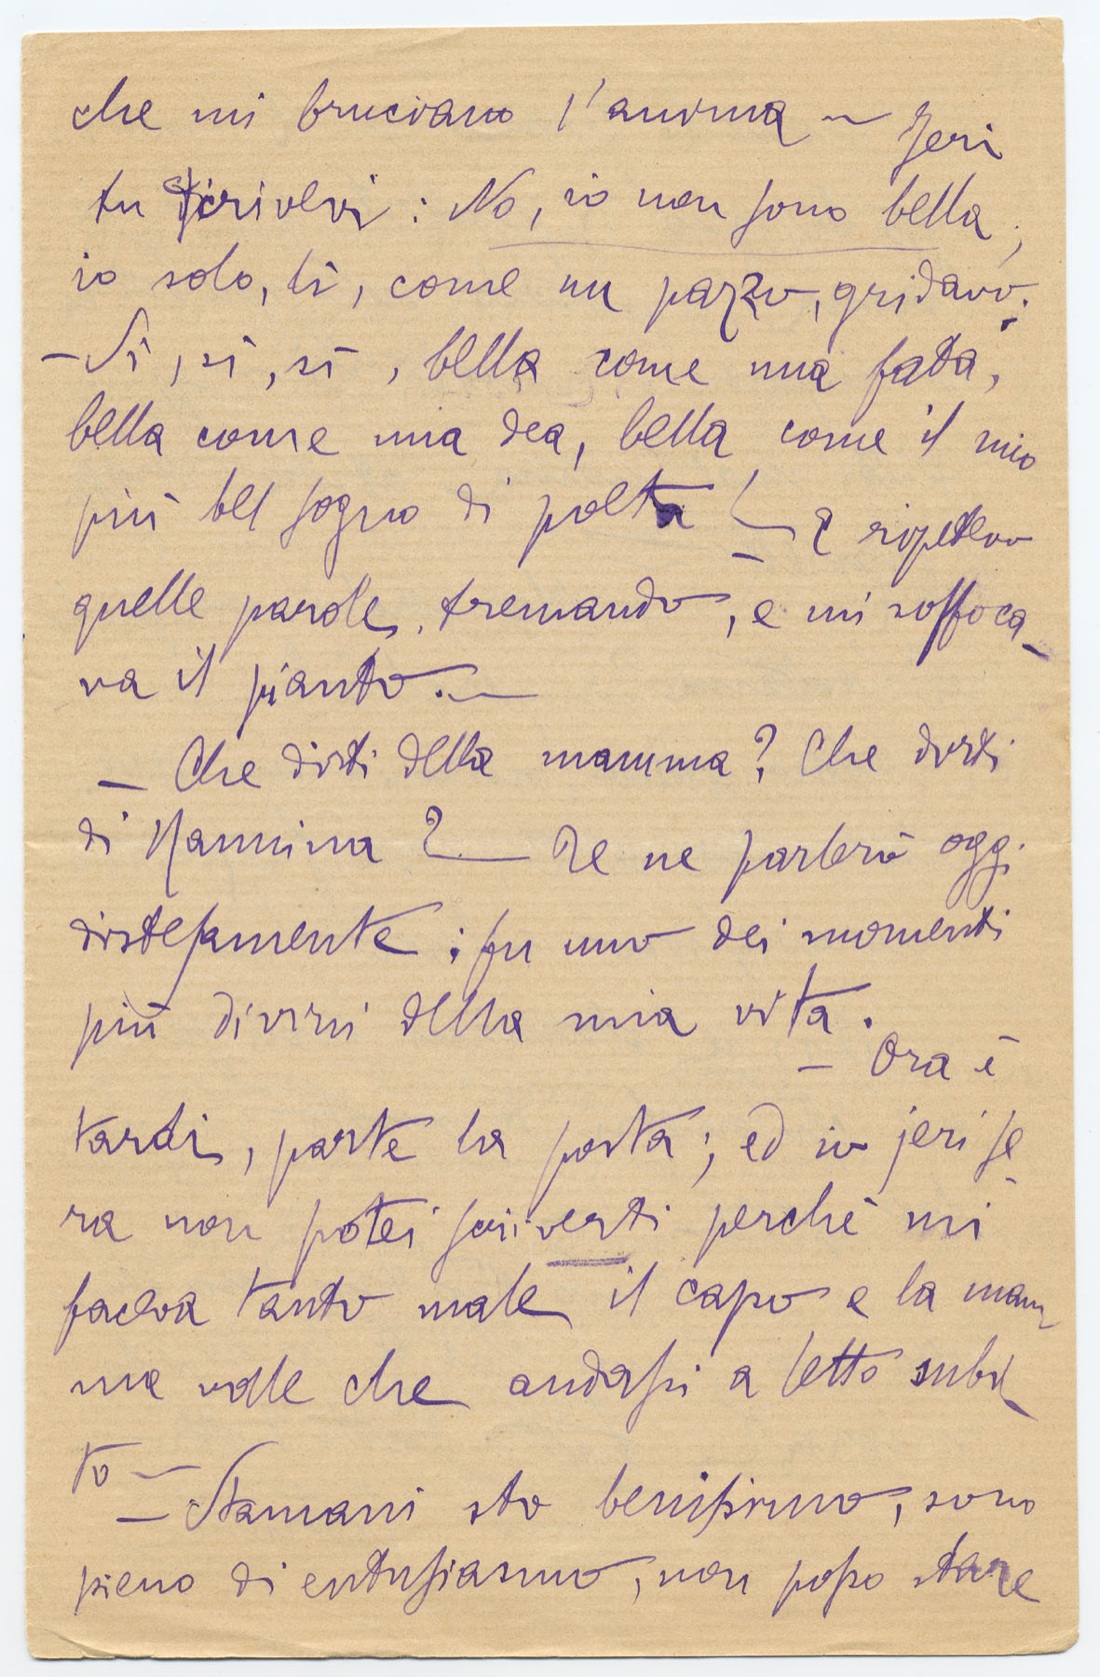 che mi bruciano l'anima — Jeri
tu scrivevi: No, io non sono bella,
io solo, lì, come un pazzo, gridavo:
— Sì, sì, sì, bella come una fata,
bella come una dea, bella come il mio
più bel sogno di poeta! — E ripetevo
quelle parole, tremando, e mi soffoca-
va il pianto. —
— Che dirti della mamma? Che dirti
di Nannina? — Te ne parlerò oggi
distesamente; fu uno dei momenti
più divini della mia vita.
— Ora è
tardi, parte la posta; ed io jeri se-
ra non potei scriverti perchè mi
faceva tanto male il capo e la mam-
ma volle che andassi a letto subi-
to —
— Stamani sto benissimo, sono
pieno di entusiasmo, non posso stare